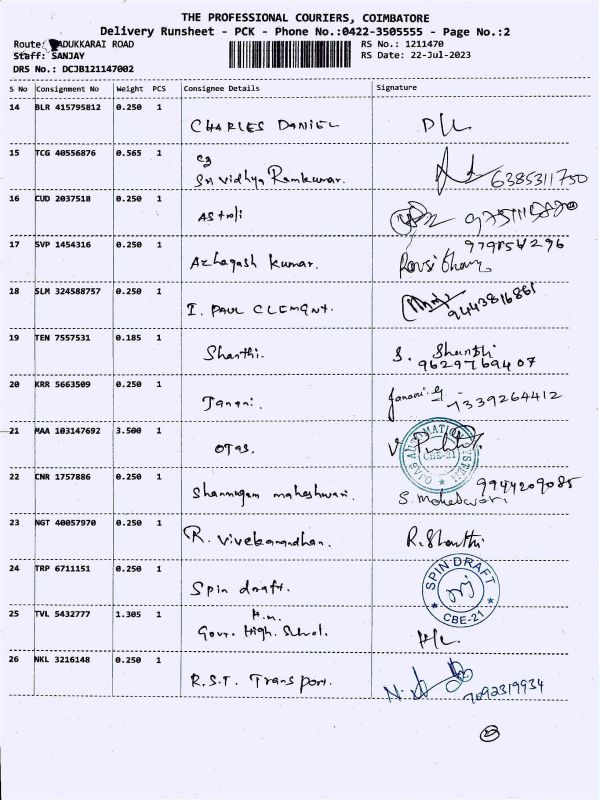 THE PROFESSIONAL COURIERS, COIMBATORE
Delivery Runsheet - PCK - Phone No.:0422-3505555 - Page No.:2
Route: ADUKKARAI ROAD
RS No.: 1211470
Staff: SANJAY
RS Date: 22-Jul-2023
DRS No.: DCJB121147002
S No Consignment No Weight PCS Consignee Details Signature
14 BLR 415795812 0.250 1
CHARLES DANIEL
15 TCG 40556876 0.565 1
Sri Vidhya Ramkumar. 6385311750
16 CUD 2037518 0.250 1
17 SVP 1454316 0.250 1
Azhagash kumar.
18 SLM 324588757 0.250 1
I. PAUL CLEMENT. 9443816861
19 TEN 7557531 0.185 1
Shanthi. S. Shanthi
9629769407
20 KRR 5663509 0.250 1
Janani. Janani.G 7339264412
21 MAA 103147692 3.500 1
OJAS. OJAS AUTOMATION SYSTEM CBE-21
22 CNR 1757886 0.250 1
Shanmugam maheshwari. S. Maheswari 9944209085
23 NGT 40057970 0.250 1
R. Vivekanandhan. R. Shanthi
24 TRP 6711151 0.250 1
Spin draft. SPIN DRAFT CBE-21
25 TVL 5432777 1.305 1
H.m.
Govt. High. School.
26 NKL 3216148 0.250 1
R.S.T. Transport. 7092319934